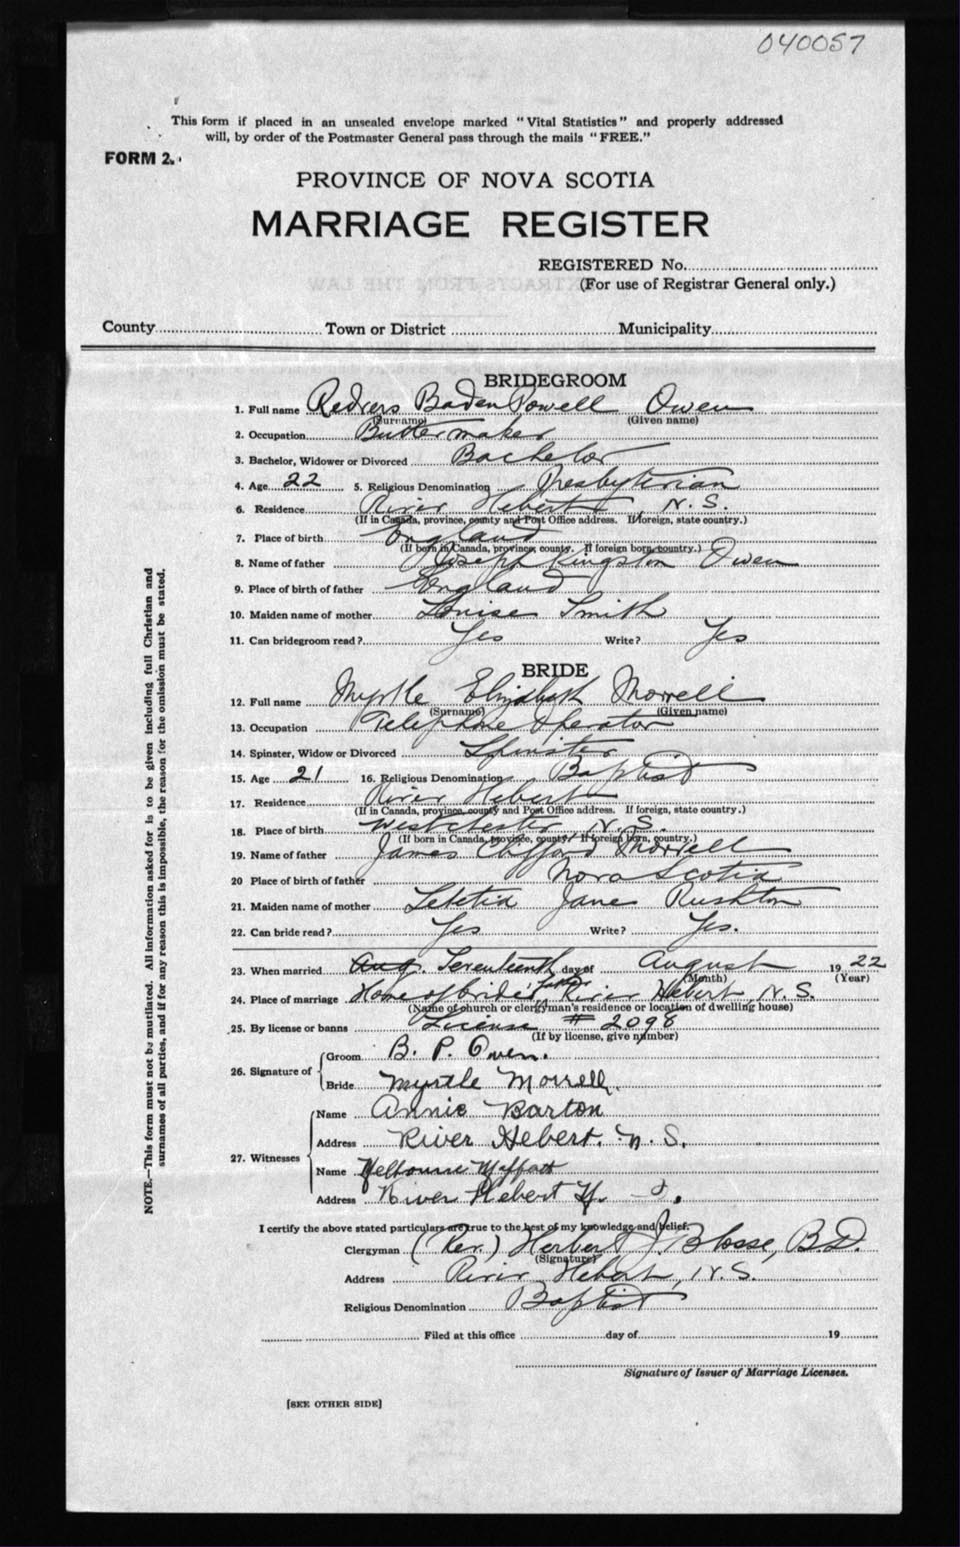 040057
This form if placed in an unsealed envelope marked "Vital Statistics" and properly addressed
will, by order of the Postmaster General pass through the mails "FREE."
FORM 2.
PROVINCE OF NOVA SCOTIA
MARRIAGE REGISTER
REGISTERED No.
(For use of Registrar General only.)
County Town or District Municipality
BRIDEGROOM
1. Full name Redvers Baden Powell Owen
(Surname) (Given name)
2. Occupation Buttermaker
3. Bachelor, Widower or Divorced Bachelor
4. Age 22 5. Religious Denomination Presbyterian
6. Residence River Hebert N.S.
(If in Canada, province, county and Post Office address. If foreign, state country.)
7. Place of birth England
(If born in Canada, province, county. If foreign born, country.)
8. Name of father Joseph Kingston Owen
9. Place of birth of father England
10. Maiden name of mother Louise Smith
11. Can bridegroom read? Yes Write? Yes
BRIDE
12. Full name Myrtle Elizabeth Morrell
(Surname) (Given name)
13. Occupation Telephone Operator
14. Spinster, Widow or Divorced Spinster
15. Age 21 16. Religious Denomination Baptist
17. Residence River Hebert
(If in Canada, province, county and Post Office address. If foreign, state country.)
18. Place of birth Westchester N.S.
(If born in Canada, province, county. If foreign born, country.)
19. Name of father James Clifford Morrell
20 Place of birth of father Nova Scotia
21. Maiden name of mother Letetia Jane Rushton
22. Can bride read? Yes Write? Yes.
23. When married Aug. Seventeenth day of August 19 22
(Month) (Year)
24. Place of marriage Home of bride's father River Hebert, N.S.
(Name of church or clergyman's residence or location of dwelling house)
25. By license or banns License # 2098
(If by license, give number)
26. Signature of
Groom B. P. Owen.
Bride Myrtle Morrell.
27. Witnesses
Name Annie Barton
Address River Hebert. N.S.
Name Melbourne Moffatt
Address River Hebert
I certify the above stated particulars are true to the best of my knowledge and belief.
Clergyman (Rev.) Herbert J. Blosse, B.D.
(Signature)
Address River Hebert, N.S.
Religious Denomination Baptist
Filed at this office day of 19
Signature of Issuer of Marriage Licenses.
[SEE OTHER SIDE]
NOTE.—This form must not be mutilated. All information asked for is to be given including full Christian and
surnames of all parties, and if for any reason this is impossible, the reason for the omission must be stated.